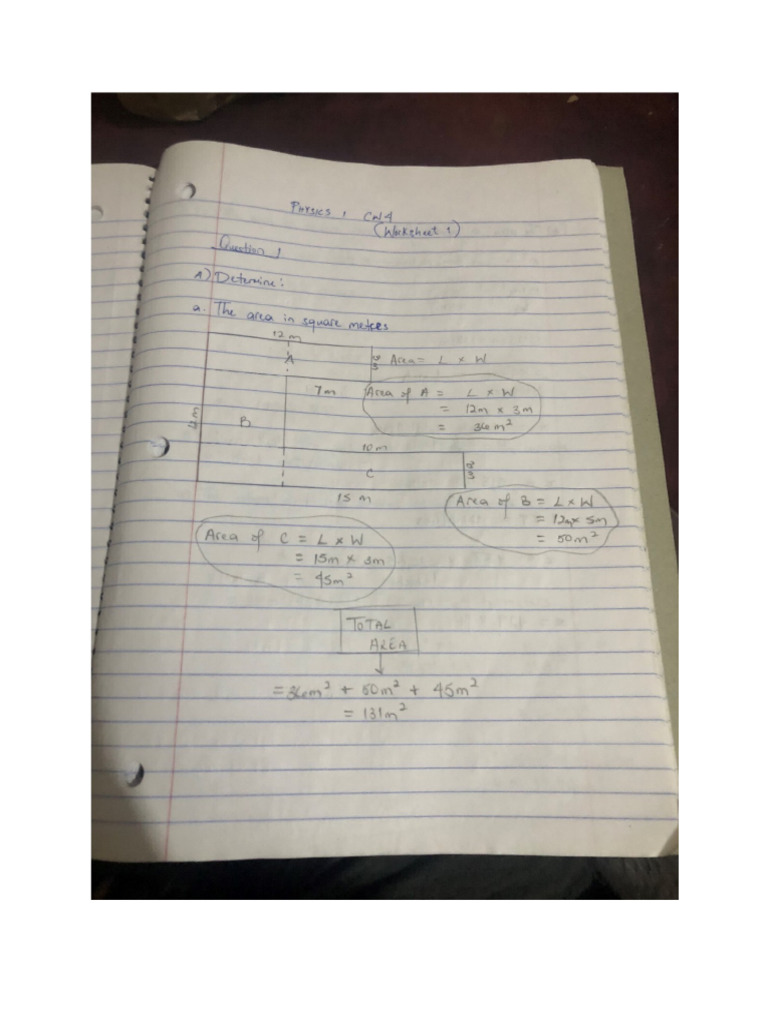 Physics 1 CW4
(Worksheet 1)
Question 1
A) Determine:
a. The area in square meters
12 m
A
3m
Area = L × W
7m
Area of A = L × W
= 12m × 3m
= 36m²
12 m
B
10m
C
3m
15 m
Area of B = L × W
= 12m × 5m
= 50m²
Area of C = L × W
= 15m × 3m
= 45m²
TOTAL
AREA
= 36m² + 50m² + 45m²
= 131m²